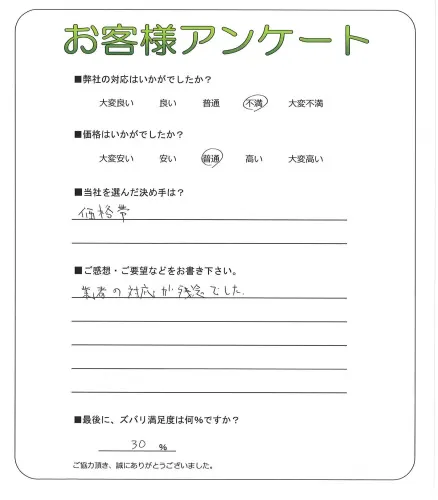 お客様アンケート
■弊社の対応はいかがでしたか？
大変良い 良い 普通 不満 大変不満
■価格はいかがでしたか？
大変安い 安い 普通 高い 大変高い
■当社を選んだ決め手は？
価格帯
■ご感想・ご要望などをお書き下さい。
業者の対応が残念でした.
■最後に、ズバリ満足度は何％ですか？
30 %
ご協力頂き、誠にありがとうございました。